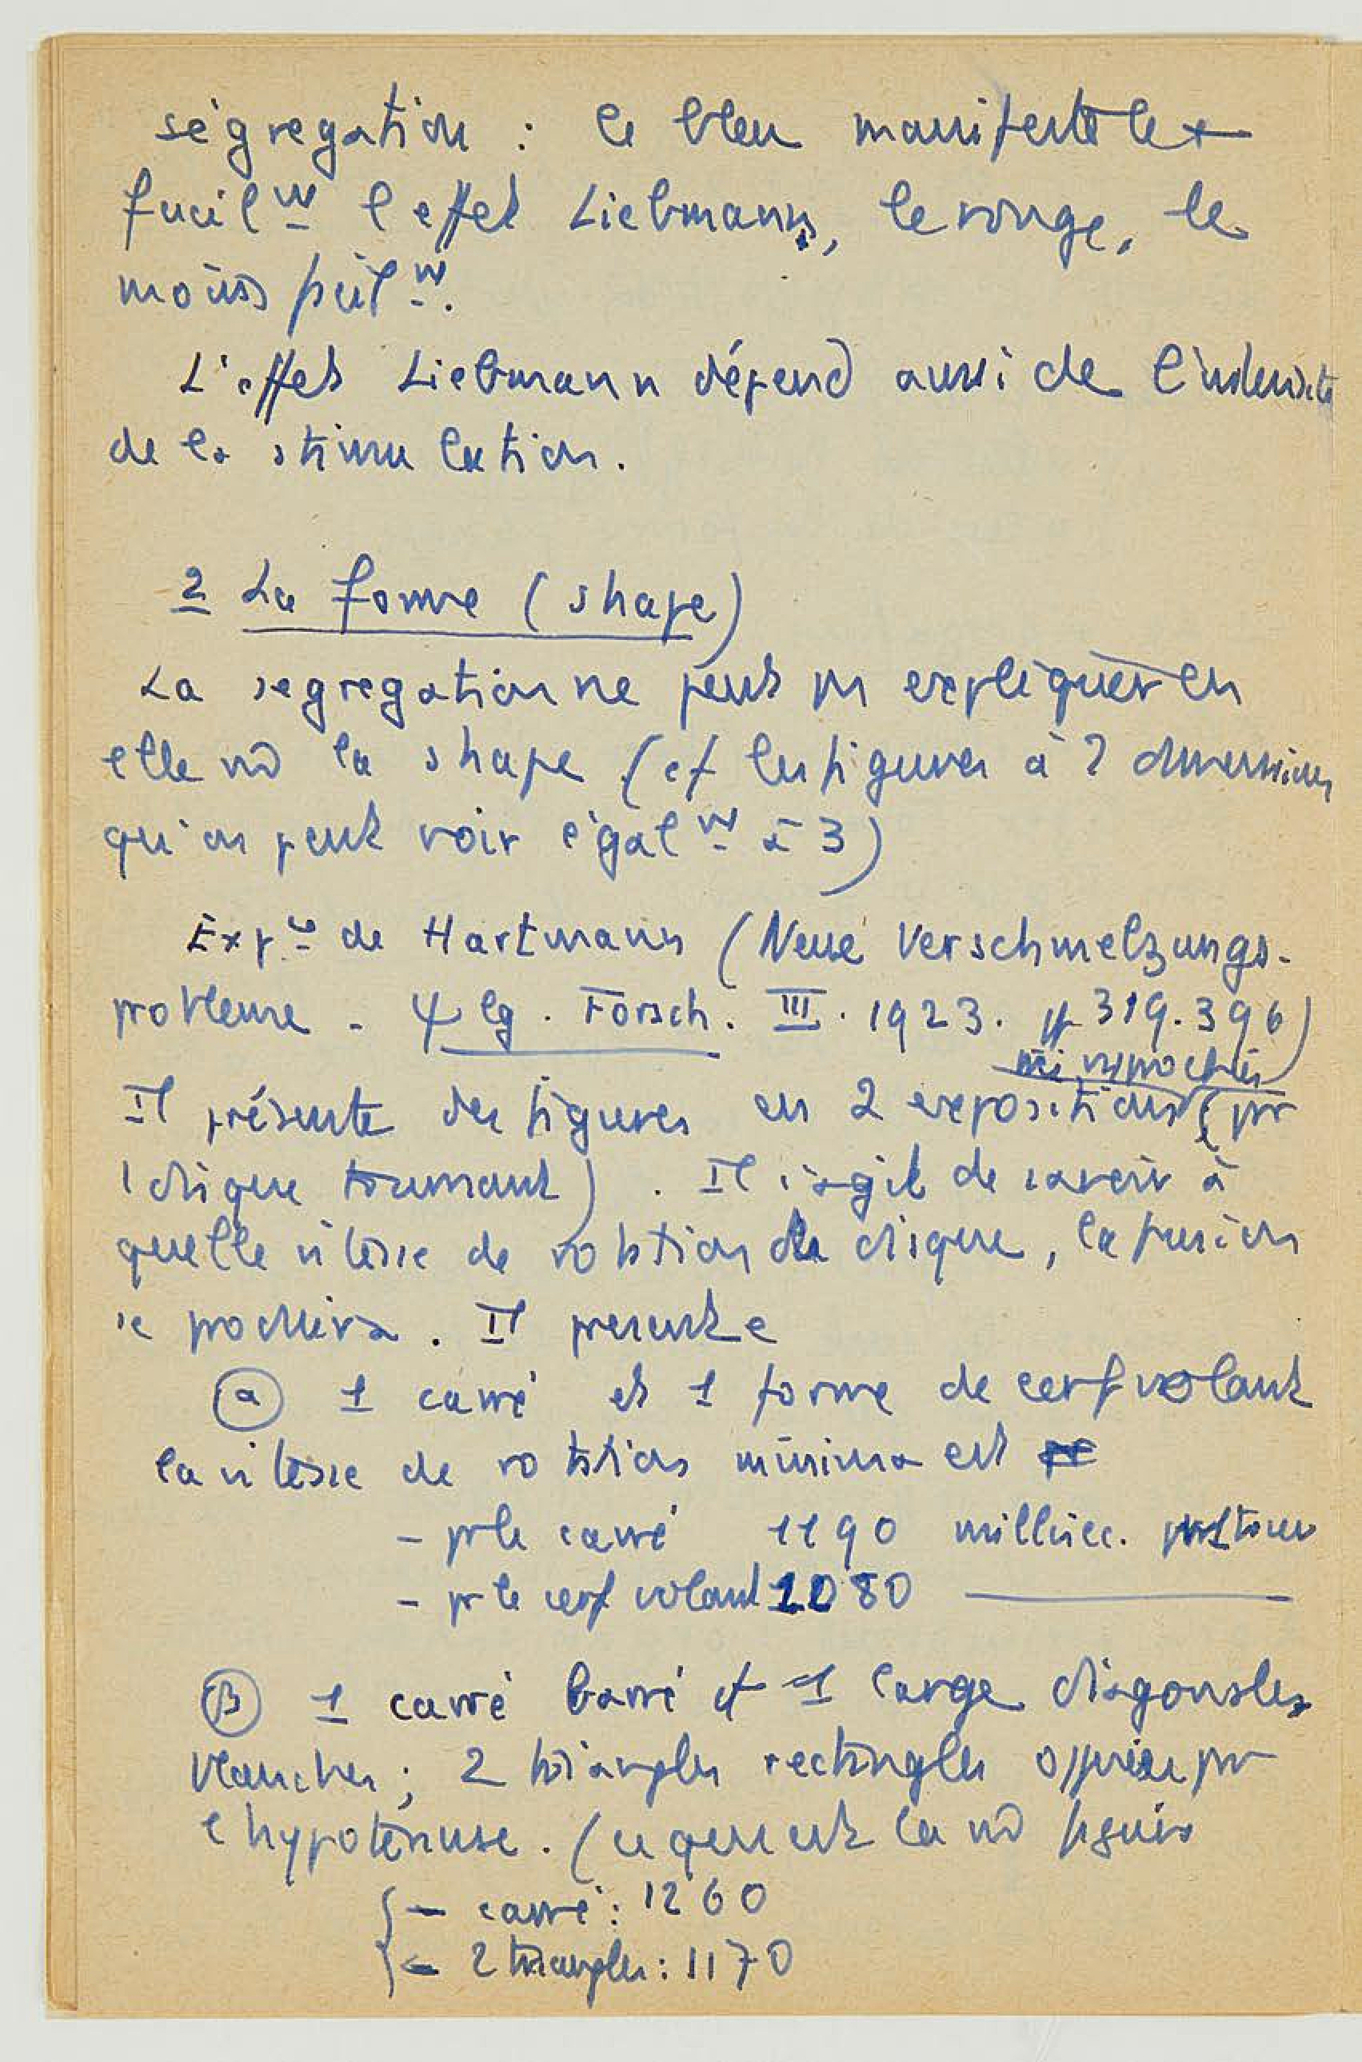 ségregation : le bleu manifeste le +
facilᵗ l'effet Liebmann, le rouge, le
moins facilᵗ.
L'effet Liebmann dépend aussi de l'intensité
de la stimulation.
2 La forme (shape)
La segregation ne peut pas expliquer en
elle m̂ la shape (cf les figures à 2 dimensions
qu'on peut voir égalᵗ à 3)
Expᶜᵉ de Hartmann (Neue Verschmelzungs-
probleme - Ψ lg. Forsch. III. 1923. pp 319.396)
très rapprochées
Il présente des figures en 2 expositions (par
1 disque tournant). Il s'agit de savoir à
quelle vitesse de rotation du disque, la fusion
se produira. Il presente
(a) 1 carré et 1 forme de cerf volant
la vitesse de rotation minima est
- pr le carré 1190 millisec. par tour
- pr le cerf volant 1080 ———
(B) 1 carré barré d' 1 large diagonale
blanche ; 2 triangles rectangles opposés par
l'hypoténuse. (ce qui est la m̂ figure
- carré : 1260
- 2 triangles : 1170